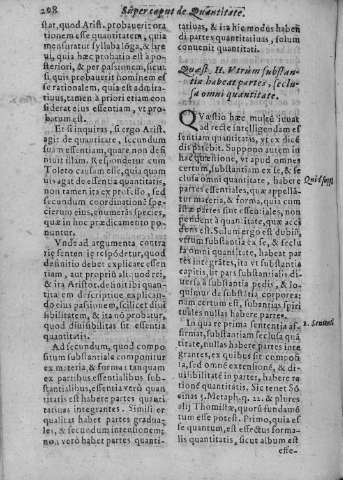 208 Super caput de Quantitate.
stat, quod Arist. probauerit ora
tionem esse quantitatem, quia
mensuratur syllaba lõga, & bre
ui, quia hęc probatio est à po-
steriori, & per passionem, sicut,
si quis probauerit hominem es
se rationalem, quia est admira-
tiuus, tamen à priori etiam con
siderat eius essentiam, vt pro-
batum est.
Et si inquiras, si ergo Arist.
agit de quantitate, secundum
suam essentiam, quare non defi
niuit illam. Respondetur cum
Toleto causam esse, quia quam
uis agat de essentia quantitatis,
non tamen ita ex professo, sed
secundum coordinationé spe-
cierum eius, enumerãs species,
quæ in hoc prædicamento po
nuntur.
Vnde ad argumenta contra
rię senten tię respõdetur, quod
definitio debet explicare essen
tiam, aut propriũ aliquod rei,
& ita Aristot. definit ibi quan-
titatem descriptione explican-
do eius passionem, scilicet diui
sibilitatem, & ita nõ probatur,
quod diuisibilitas sit essentia
quantitatis.
Ad secundum, quod compo
situm substantiale componitur
ex materia, & forma: tanquam
ex partibus essentialibus sub-
stantialibus, essentia verò quan
titatis habet partes quanti
tatiuas integrantes. Simili er
qualitas habet partes gradua-
les, & secundum intensionem;
nō verò habet partes quanti-
tatiuas, & ita hic modus haben
di partes quantitatiuas, solum
conuenit quantitati.
Quæst. II. Vtrum substan-
tia habeat partes, seclu-
sa omni quantitate.
QVæstio hæc multũ iuuat
ad rectè intelligendam es
sentiam quantitatis, vt ex dicé
dis patebit. Suppono autem in
hac quæstione, vt apud omnes
certum, substantiam ex se, & se
clusa omni quantitate, habere
partes essentiales, quæ appellã-
tur materia, & forma, quia cum
istæ partes sint essentiales, non
pendent à quantitate, quæ acci
dens est. Solum ergo est dubiũ,
vtrum substantia ex se, & seclu
sa omni quantitate, habeat par
tes integrales, ita vt substantia
capitis, sit pars substantialis di-
uersa à substantia pedis, & lo-
quimur de substãtia corporea:
nam certum est, substantias spiri
tuales nullas habere partes.
Quid supp.
In qua re prima sententia af-
firmat, substantiam seclusa quã
titate, nullas habere partes inte
grantes, ex quibus sit composi
ta, sed omnem extensionem, &
diuisibilitatem in partes, habere ra
tione quantitatis. Sic tenet Sõ
cinas 5. Metaph. q. 22. & plures
alij Thomistæ, quorũ fundamẽ
tum esse potest. Primo, quia es
se quantum, est effectus forma-
lis quantitatis, sicut album est
1. Sententi
esse-